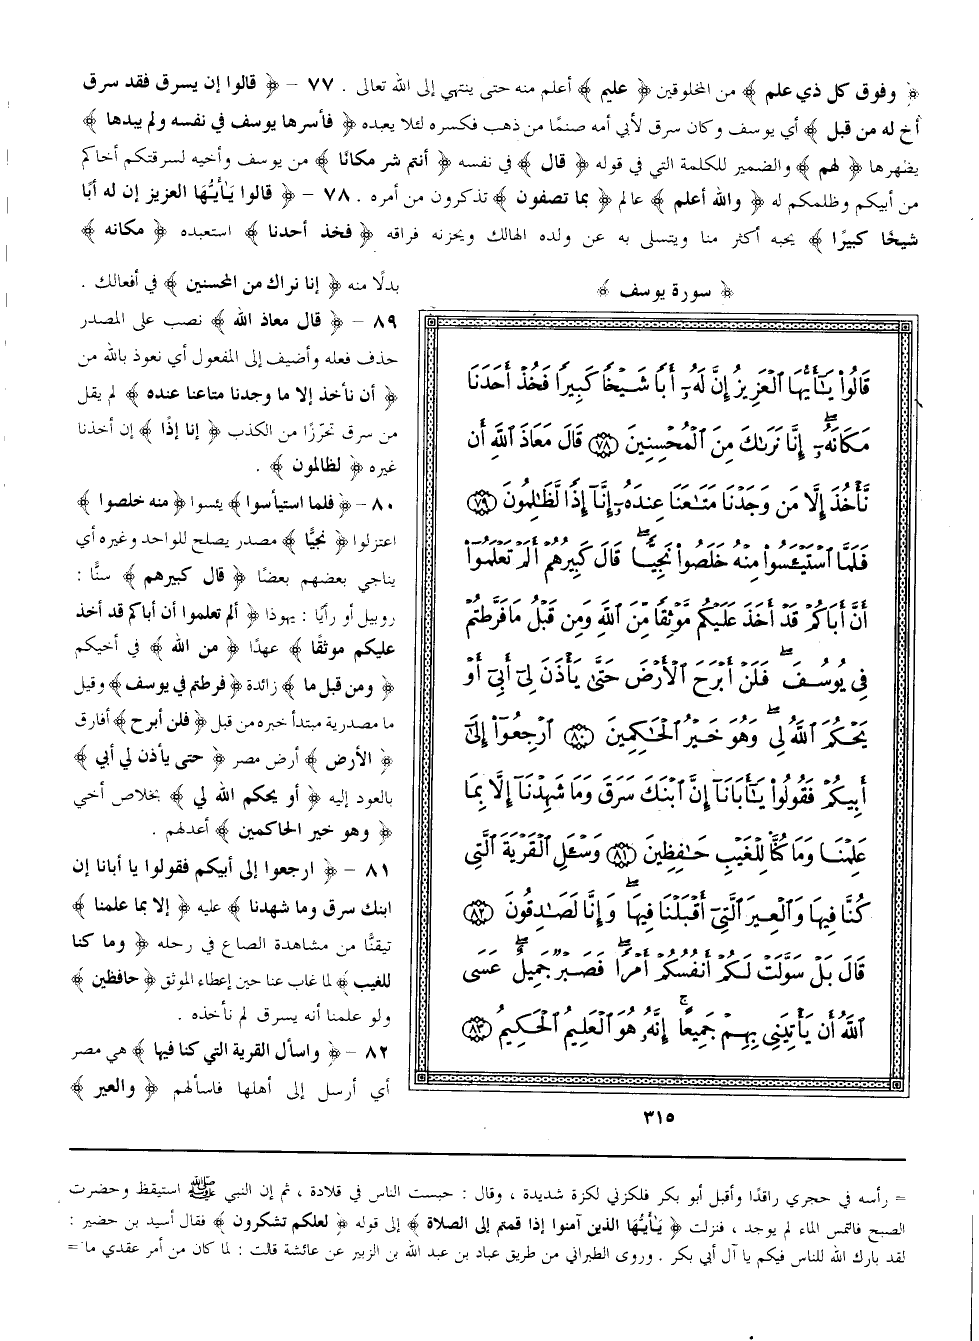 ﴿ وفوق كل ذي علم ﴾ من المخلوقين ﴿ عليم ﴾ أعلم منه حتى ينتهي إلى الله تعالى . ٧٧ – ﴿ قالوا إن يسرق فقد سرق
أخ له من قبل ﴾ أي يوسف وكان سرق لأبي أمه صنمًا من ذهب فكسره لئلا يعبده ﴿ فأسرها يوسف في نفسه ولم يبدها ﴾
يظهرها ﴿ لهم ﴾ والضمير للكلمة التي في قوله ﴿ قال ﴾ في نفسه ﴿ أنتم شر مكانًا ﴾ من يوسف وأخيه لسرقتكم أخاكم
من أبيكم وظلمكم له ﴿ والله أعلم ﴾ عالم ﴿ بما تصفون ﴾ تذكرون من أمره . ٧٨ – ﴿ قالوا يَٰأَيُّهَا العزيز إن له أبًا
شيخًا كبيرًا ﴾ يحبه أكثر منا ويتسلى به عن ولده الهالك ويحزنه فراقه ﴿ فخذ أحدنا ﴾ استعبده ﴿ مكانه ﴾
﴿ سورة يوسف ﴾
قَالُوا۟ يَٰٓأَيُّهَا ٱلْعَزِيزُ إِنَّ لَهُۥٓ أَبًا شَيْخًا كَبِيرًا فَخُذْ أَحَدَنَا
مَكَانَهُۥٓ ۖ إِنَّا نَرَىٰكَ مِنَ ٱلْمُحْسِنِينَ ﴿٧٨﴾ قَالَ مَعَاذَ ٱللَّهِ أَن
نَّأْخُذَ إِلَّا مَن وَجَدْنَا مَتَٰعَنَا عِندَهُۥٓ إِنَّآ إِذًا لَّظَٰلِمُونَ ﴿٧٩﴾
فَلَمَّا ٱسْتَيْـَٔسُوا۟ مِنْهُ خَلَصُوا۟ نَجِيًّا ۖ قَالَ كَبِيرُهُمْ أَلَمْ تَعْلَمُوٓا۟
أَنَّ أَبَاكُمْ قَدْ أَخَذَ عَلَيْكُم مَّوْثِقًا مِّنَ ٱللَّهِ وَمِن قَبْلُ مَا فَرَّطتُمْ
فِى يُوسُفَ ۖ فَلَنْ أَبْرَحَ ٱلْأَرْضَ حَتَّىٰ يَأْذَنَ لِىٓ أَبِىٓ أَوْ
يَحْكُمَ ٱللَّهُ لِى ۖ وَهُوَ خَيْرُ ٱلْحَٰكِمِينَ ﴿٨٠﴾ ٱرْجِعُوٓا۟ إِلَىٰٓ
أَبِيكُمْ فَقُولُوا۟ يَٰٓأَبَانَآ إِنَّ ٱبْنَكَ سَرَقَ وَمَا شَهِدْنَآ إِلَّا بِمَا
عَلِمْنَا وَمَا كُنَّا لِلْغَيْبِ حَٰفِظِينَ ﴿٨١﴾ وَسْـَٔلِ ٱلْقَرْيَةَ ٱلَّتِى
كُنَّا فِيهَا وَٱلْعِيرَ ٱلَّتِىٓ أَقْبَلْنَا فِيهَا ۖ وَإِنَّا لَصَٰدِقُونَ ﴿٨٢﴾
قَالَ بَلْ سَوَّلَتْ لَكُمْ أَنفُسُكُمْ أَمْرًا ۖ فَصَبْرٌ جَمِيلٌ ۖ عَسَى
ٱللَّهُ أَن يَأْتِيَنِى بِهِمْ جَمِيعًا ۚ إِنَّهُۥ هُوَ ٱلْعَلِيمُ ٱلْحَكِيمُ ﴿٨٣﴾
٣١٥
بدلًا منه ﴿ إنا نراك من المحسنين ﴾ في أفعالك .
٨٩ – ﴿ قال معاذ الله ﴾ نصب على المصدر
حذف فعله وأضيف إلى المفعول أي نعوذ بالله من
﴿ أن نأخذ إلا ما وجدنا متاعنا عنده ﴾ لم يقل
من سرق تحرّزًا من الكذب ﴿ إنا إذًا ﴾ إن أخذنا
غيره ﴿ لظالمون ﴾ .
٨٠ – ﴿ فلما استيأسوا ﴾ يئسوا ﴿ منه خلصوا ﴾
اعتزلوا ﴿ نجيًّا ﴾ مصدر يصلح للواحد وغيره أي
يناجي بعضهم بعضًا ﴿ قال كبيرهم ﴾ سنًّا :
روبيل أو رأيًا : يهوذا ﴿ ألم تعلموا أن أباكم قد أخذ
عليكم موثقًا ﴾ عهدًا ﴿ من الله ﴾ في أخيكم
﴿ ومن قبل ما ﴾ زائدة ﴿ فرطتم في يوسف ﴾ وقيل
ما مصدرية مبتدأ خبره من قبل ﴿ فلن أبرح ﴾ أفارق
﴿ الأرض ﴾ أرض مصر ﴿ حتى يأذن لي أبي ﴾
بالعود إليه ﴿ أو يحكم الله لي ﴾ بخلاص أخي
﴿ وهو خير الحاكمين ﴾ أعدلهم .
٨١ – ﴿ ارجعوا إلى أبيكم فقولوا يا أبانا إن
ابنك سرق وما شهدنا ﴾ عليه ﴿ إلا بما علمنا ﴾
تيقنًا من مشاهدة الصاع في رحله ﴿ وما كنا
للغيب ﴾ لما غاب عنا حين إعطاء الموثق ﴿ حافظين ﴾
ولو علمنا أنه يسرق لم نأخذه .
٨٢ – ﴿ واسأل القرية التي كنا فيها ﴾ هي مصر
أي أرسل إلى أهلها فاسألهم ﴿ والعير ﴾
= رأسه في حجري راقدًا وأقبل أبو بكر فلكزني لكزة شديدة ، وقال : حبست الناس في قلادة ، ثم إن النبي ﷺ استيقظ وحضرت
الصبح فالتمس الماء لم يوجد ، فنزلت ﴿ يَٰأَيُّهَا الذين آمنوا إذا قمتم إلى الصلاة ﴾ إلى قوله ﴿ لعلكم تشكرون ﴾ فقال أسيد بن حضير :
لقد بارك الله للناس فيكم يا آل أبي بكر . وروى الطبراني من طريق عباد بن عبد الله بن الزبير عن عائشة قالت : لما كان من أمر عقدي ما =